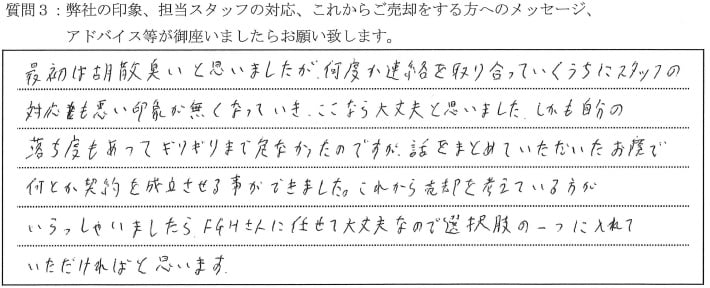 質問３：弊社の印象、担当スタッフの対応、これからご売却をする方へのメッセージ、
アドバイス等が御座いましたらお願い致します。
最初は胡散臭いと思いましたが、何度か連絡を取り合っていくうちにスタッフの
対応も悪い印象が無くなっていき、ここなら大丈夫と思いました。しかも自分の
落ち度もあってギリギリまで危なかったのですが、話をまとめていただいたお陰で
何とか契約を成立させる事ができました。これから売却を考えている方が
いらっしゃいましたら、FGHさんに任せて大丈夫なので選択肢の一つに入れて
いただければと思います。